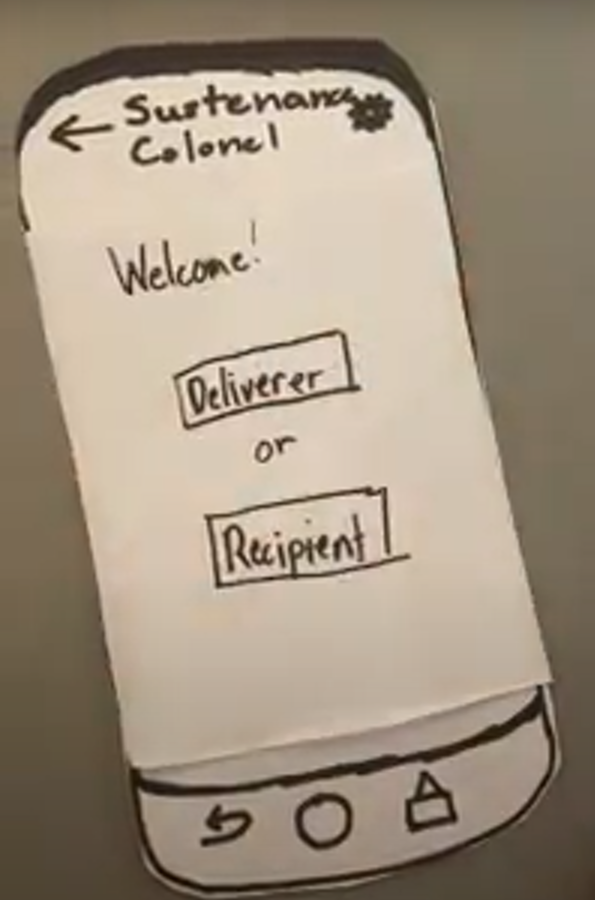 Sustenance
Colonel
Welcome!
Deliverer
or
Recipient